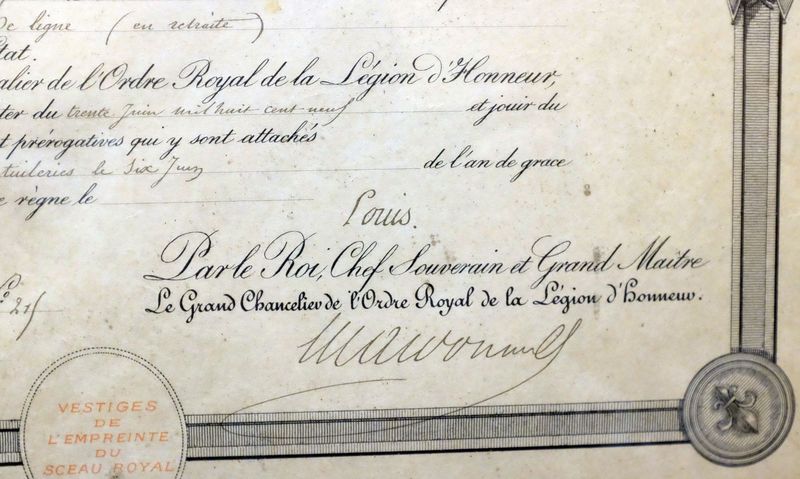 de ligne (en retraite)
tat.
alier de l'Ordre Royal de la Légion d'Honneur,
ter du trente Juin mil huit cent neuf et jouir du
t prérogatives qui y sont attachés.
tuileries le Six Juin de l'an de grace
e règne le
Louis.
Par le Roi, Chef Souverain et Grand Maître
Le Grand Chancelier de l'Ordre Royal de la Légion d'honneur.
VESTIGES
DE
L'EMPREINTE
DU
SCEAU ROYAL